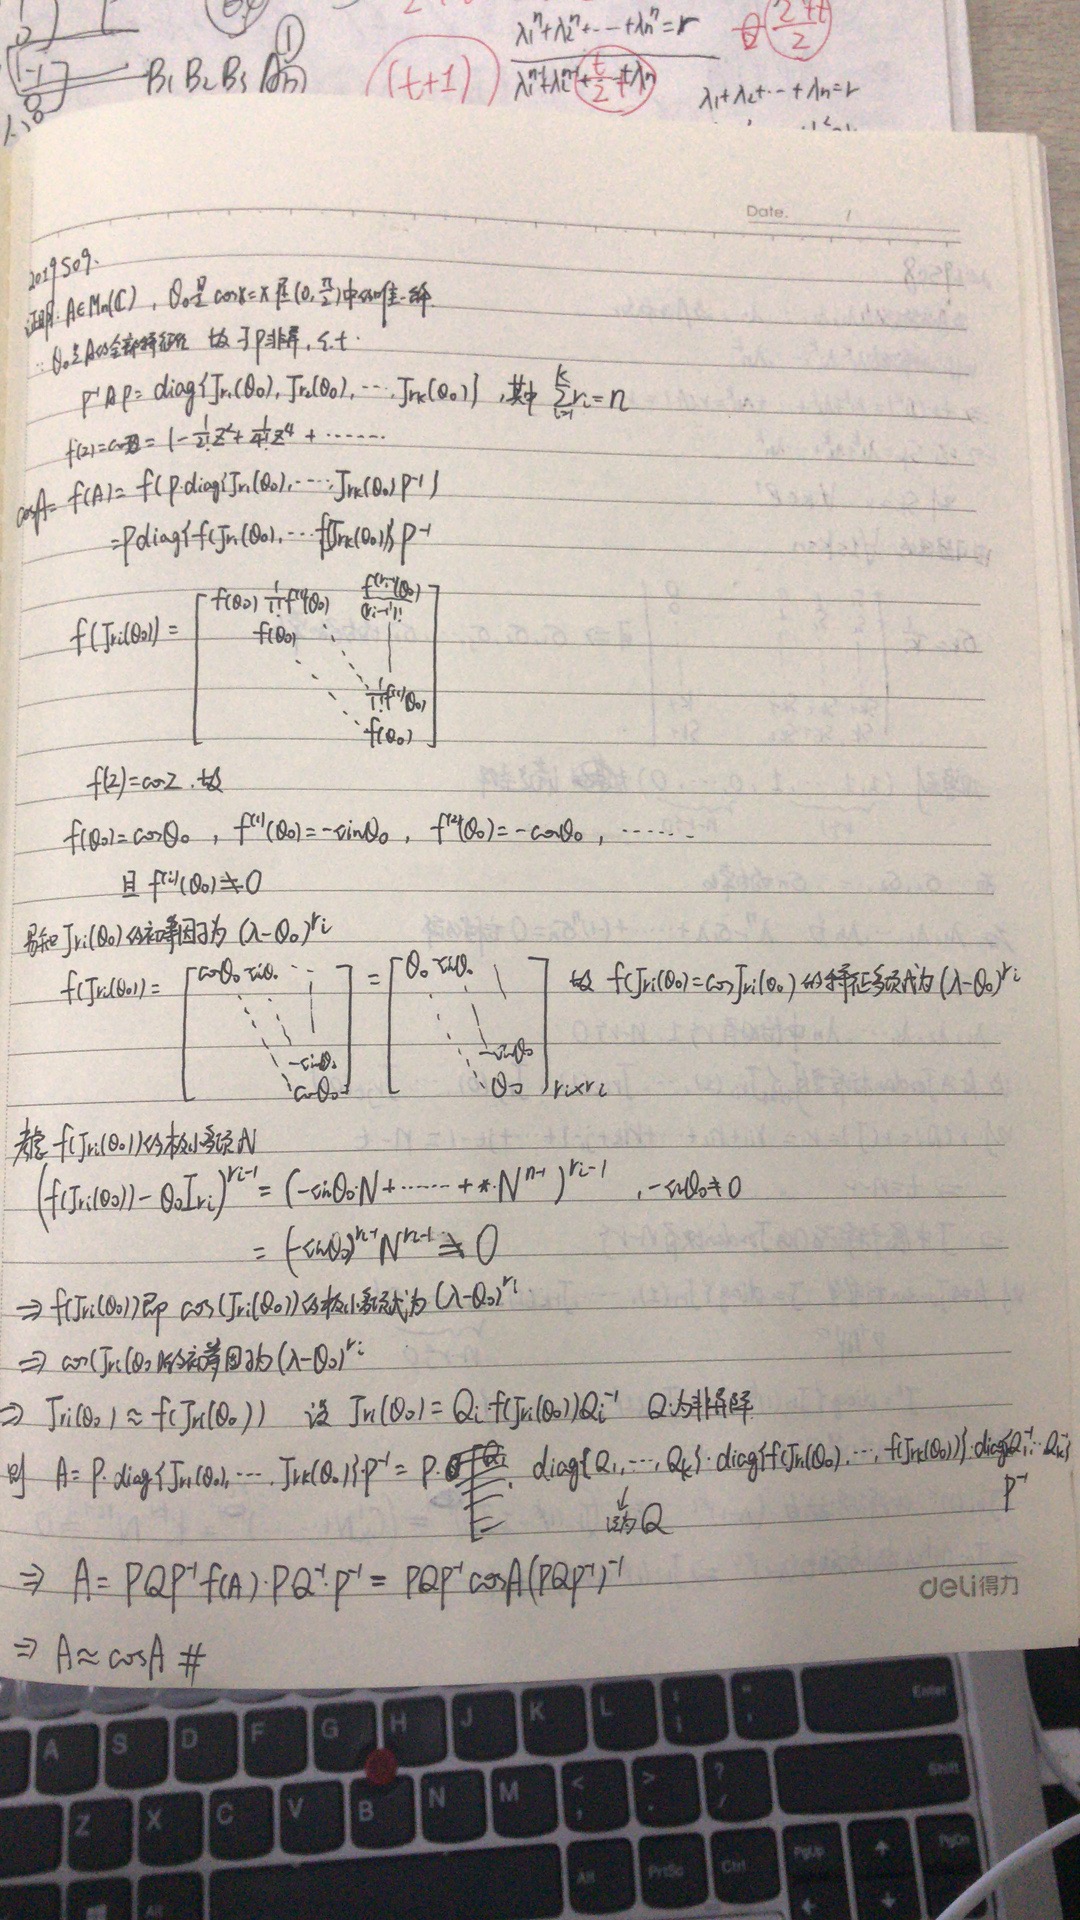 B₁ B₂ B₃
(t+1)
λ₁ⁿ+λ₂ⁿ+⋯+λₙⁿ=r
λ₁+λ₂+⋯+λₙ=r
Date. /
2019S09.
证明: A∈Mn(C), θ₀是 cosx=x 在(0, π/2)中的唯一解
∵ θ₀是A的全部特征值 故 ∃P非异, s.t.
P⁻¹AP = diag{Jr₁(θ₀), Jr₂(θ₀), ⋯, Jrk(θ₀)}, 其中 Σ(i=1→k) ri = n
f(z)=cosz = 1-1/2! z²+1/4! z⁴ + ⋯⋯
cosA= f(A)= f(P·diag{Jr₁(θ₀), ⋯, Jrk(θ₀)}P⁻¹)
=Pdiag{f(Jr₁(θ₀), ⋯ f(Jrk(θ₀))}P⁻¹
f(Jri(θ₀)) = [f(θ₀) 1/1! f⁽¹⁾(θ₀) f⁽ʳⁱ⁻¹⁾(θ₀)/(ri-1)!
f(θ₀)
1/1! f⁽¹⁾(θ₀)
f(θ₀)]
f(z)=cosz. 故
f(θ₀)=cosθ₀, f⁽¹⁾(θ₀)=-sinθ₀, f⁽²⁾(θ₀)=-cosθ₀, ⋯⋯
且 f⁽ⁱ⁾(θ₀)≠0
易知 Jri(θ₀)的初等因子为 (λ-θ₀)^ri
f(Jri(θ₀))= [cosθ₀ -sinθ₀ ⋯ -sinθ₀ cosθ₀] = [θ₀ -sinθ₀ -sinθ₀ θ₀]ri×ri 故 f(Jri(θ₀))=cosJri(θ₀)的特征多项式为 (λ-θ₀)^ri
考虑 f(Jri(θ₀))的极小多项式
(f(Jri(θ₀))-θ₀Iri)^(ri-1) = (-sinθ₀·N+⋯⋯+*·Nⁿ⁻¹)^(ri-1), -sinθ₀≠0
= (-sinθ₀)^(ri-1) N^(ri-1) ≠ 0
⇒ f(Jri(θ₀))即 cos(Jri(θ₀))的极小多项式为 (λ-θ₀)^ri
⇒ cos(Jri(θ₀))的初等因子为 (λ-θ₀)^ri
⇒ Jri(θ₀) ≈ f(Jri(θ₀)) 设 Jri(θ₀) = Qi f(Jri(θ₀))Qi⁻¹ Q为非异阵
则 A = P·diag{Jr₁(θ₀), ⋯, Jrk(θ₀)}·P⁻¹ = P· diag{Q₁, ⋯, Qk}·diag{f(Jr₁(θ₀), ⋯, f(Jrk(θ₀))}·diag{Q₁⁻¹ ⋯ Qk⁻¹}
P⁻¹
记为Q
⇒ A = PQP⁻¹f(A)·PQ⁻¹·P⁻¹ = PQP⁻¹cosA(PQP⁻¹)⁻¹
deli得力
⇒ A≈cosA #
A S D F G H J K L : ; " ' Enter
Z X C V B N M < , > . ? / Shift
Alt PrtSc Ctrl PgUp PgDn
Alt